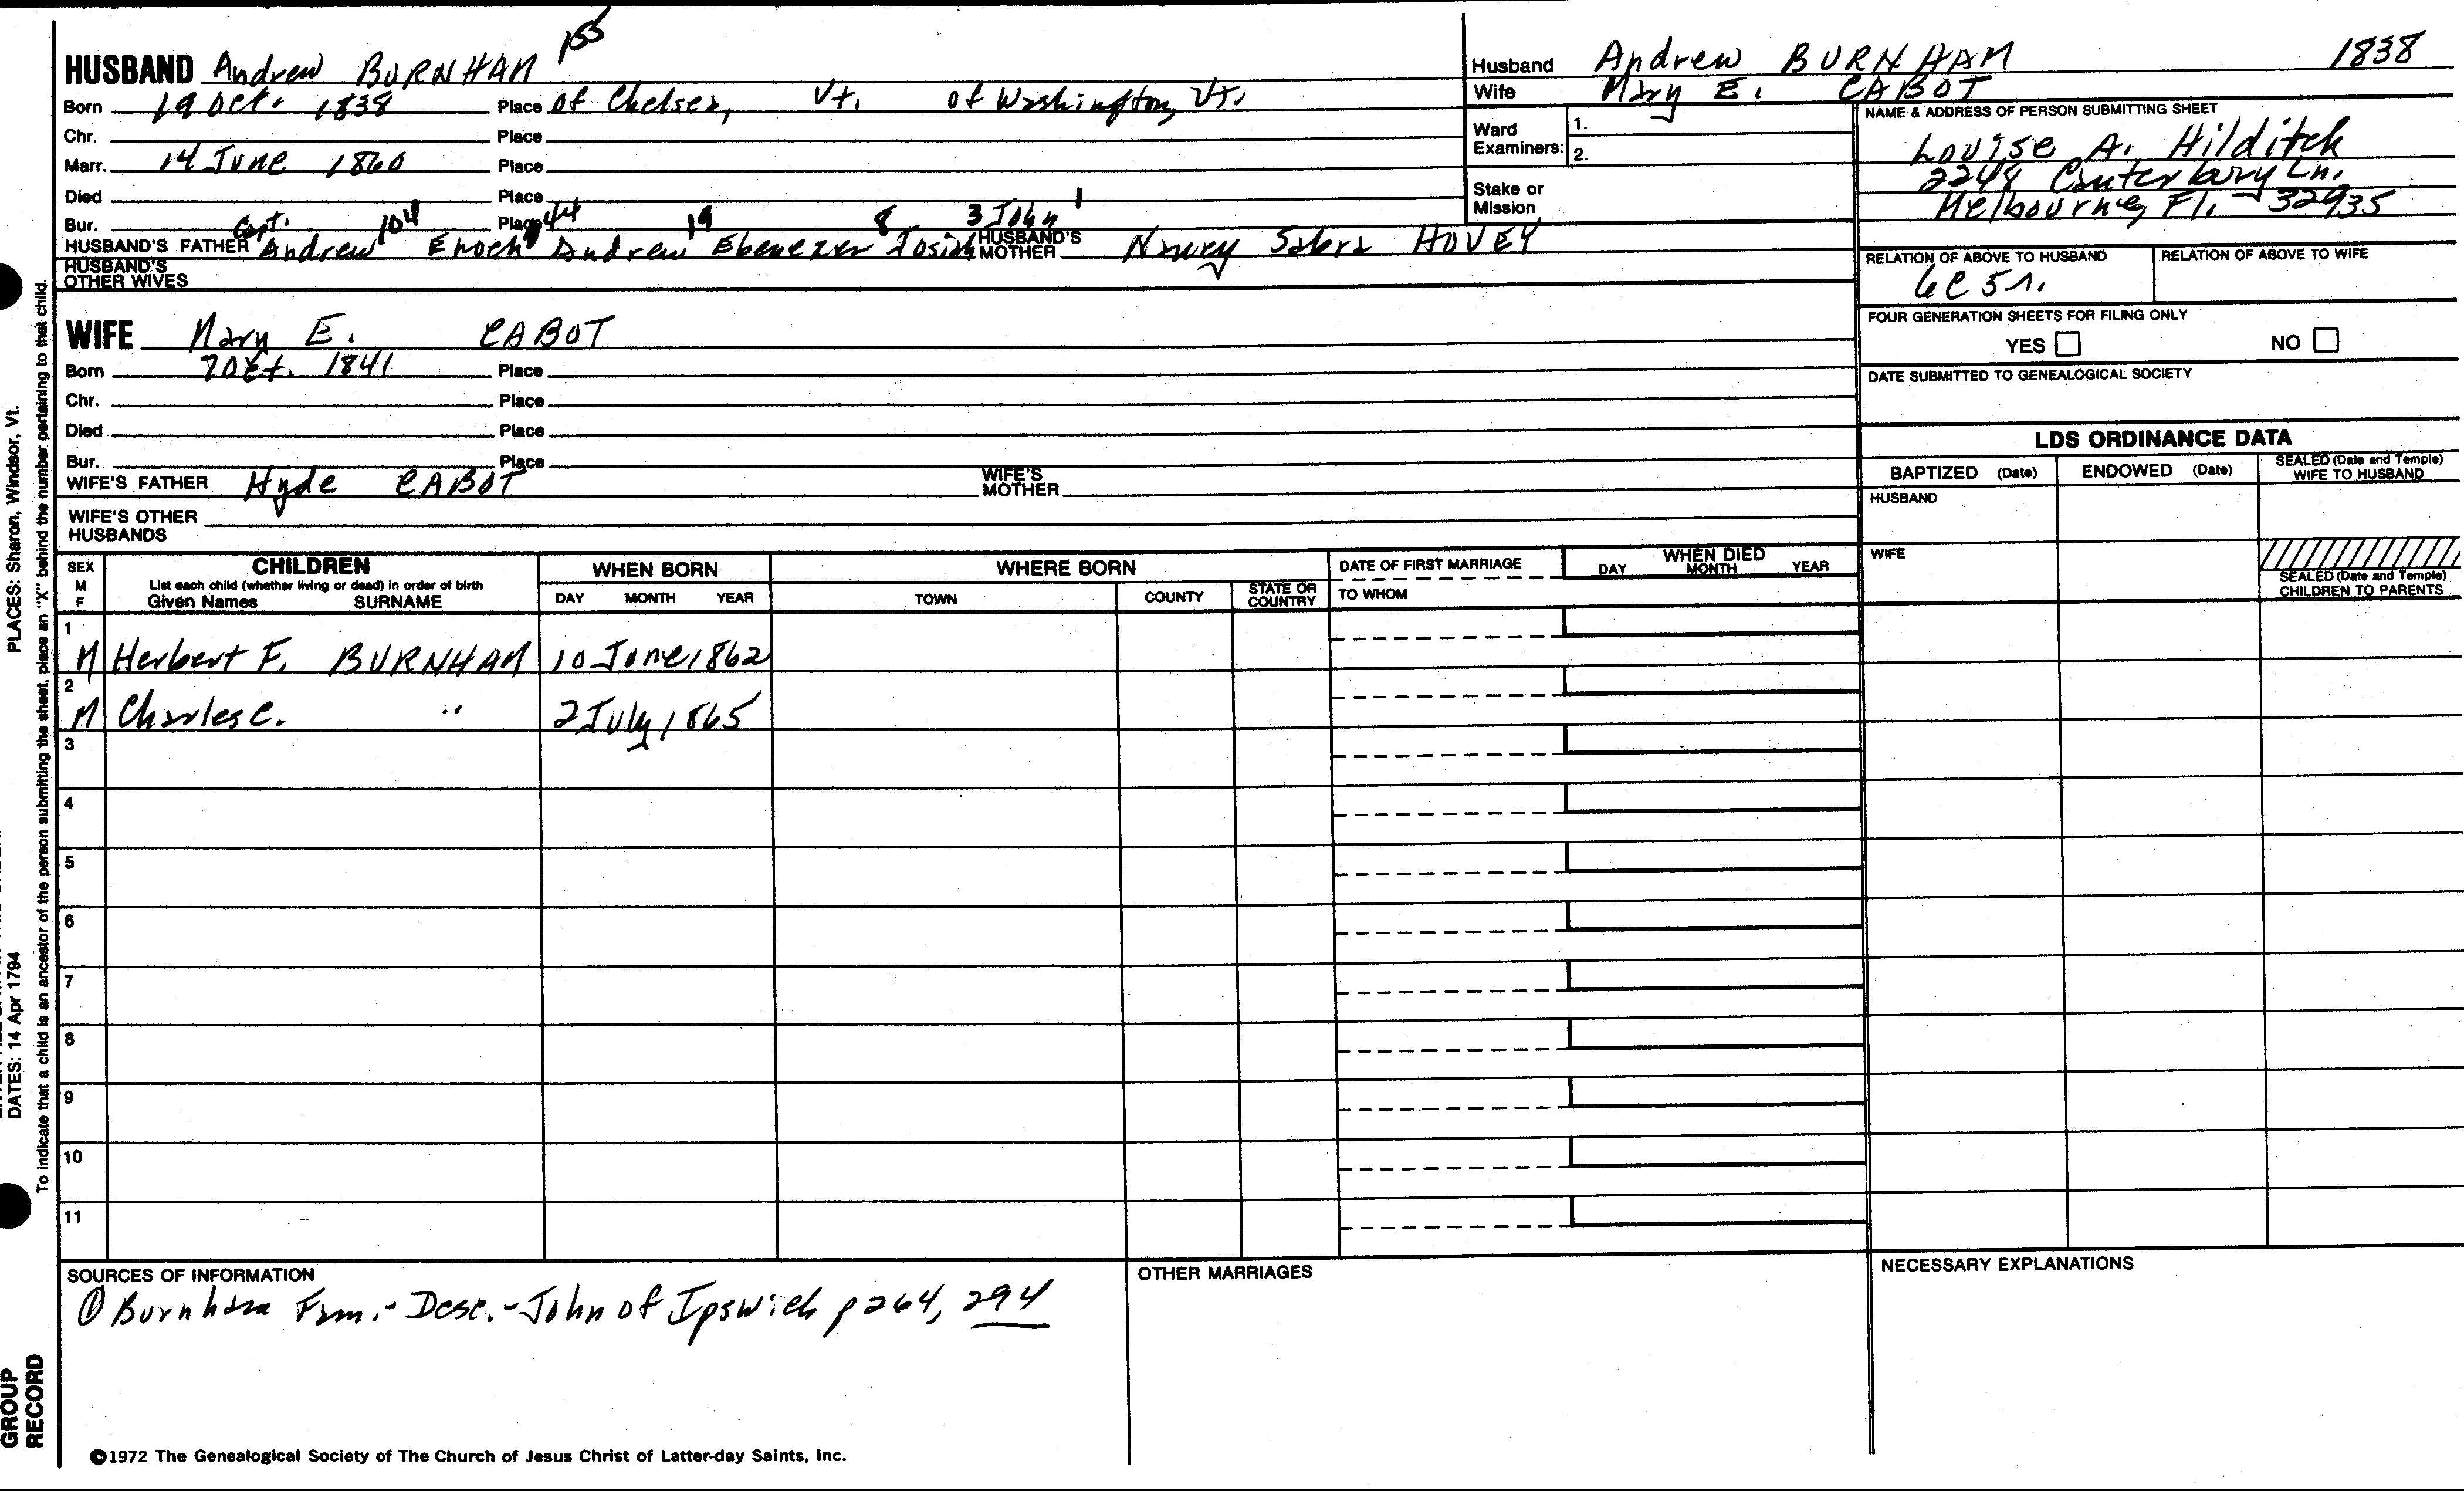 155
HUSBAND Andrew BURNHAM
Born 19 Oct. 1838 Place of Chelsea, Vt. of Washington, Vt.
Chr. Place
Marr. 14 June 1860 Place
Died Place
Bur. Place
Capt. 104 44 19 8 3 John 1
HUSBAND'S FATHER Andrew Enoch Andrew Ebenezer Josiah HUSBAND'S MOTHER Nancy Salera HOVEY
HUSBAND'S OTHER WIVES
WIFE Mary E. CABOT
Born 7 Oct. 1841 Place
Chr. Place
Died Place
Bur. Place
WIFE'S FATHER Hyde CABOT WIFE'S MOTHER
WIFE'S OTHER HUSBANDS
Husband Andrew BURNHAM 1838
Wife Mary E. CABOT
Ward Examiners: 1.
2.
Stake or Mission
NAME & ADDRESS OF PERSON SUBMITTING SHEET
Louise A. Hilditch
2248 Canterbury Ln.
Melbourne, Fl. 32935
RELATION OF ABOVE TO HUSBAND RELATION OF ABOVE TO WIFE
6C5r.
FOUR GENERATION SHEETS FOR FILING ONLY
YES NO
DATE SUBMITTED TO GENEALOGICAL SOCIETY
LDS ORDINANCE DATA
BAPTIZED (Date) ENDOWED (Date) SEALED (Date and Temple) WIFE TO HUSBAND
HUSBAND
WIFE
SEALED (Date and Temple) CHILDREN TO PARENTS
SEX M F
CHILDREN
List each child (whether living or dead) in order of birth
Given Names SURNAME
WHEN BORN
DAY MONTH YEAR
WHERE BORN
TOWN COUNTY STATE OR COUNTRY
DATE OF FIRST MARRIAGE
TO WHOM
WHEN DIED
DAY MONTH YEAR
1
M Herbert F. BURNHAM 10 June 1862
2
M Charles C. " 2 July 1865
3
4
5
6
7
8
9
10
11
SOURCES OF INFORMATION
① Burnham Fam. - Desc. - John of Ipswich p 264, 294
OTHER MARRIAGES
NECESSARY EXPLANATIONS
©1972 The Genealogical Society of The Church of Jesus Christ of Latter-day Saints, Inc.
PLACES: Sharon, Windsor, Vt.
DATES: 14 Apr 1794
To indicate that a child is an ancestor of the person submitting the sheet, place an "X" behind the number pertaining to that child.
GROUP
RECORD